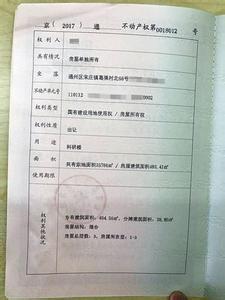 京 (2017) 通 不动产权第0018012号
权利人
共有情况 房屋单独所有
坐落 通州区宋庄镇葛渠村北68号
不动产单元号 110112 0002
权利类型 国有建设用地使用权 / 房屋所有权
权利性质 出让
用途 科研楼
面积 共有宗地面积35786m² / 房屋建筑面积493.41m²
使用期限
权利其他状况
专有建筑面积: 454.56m², 分摊建筑面积: 38.85m²
房屋结构: 混合
房屋总层数: 3, 房屋所在层: 1-3